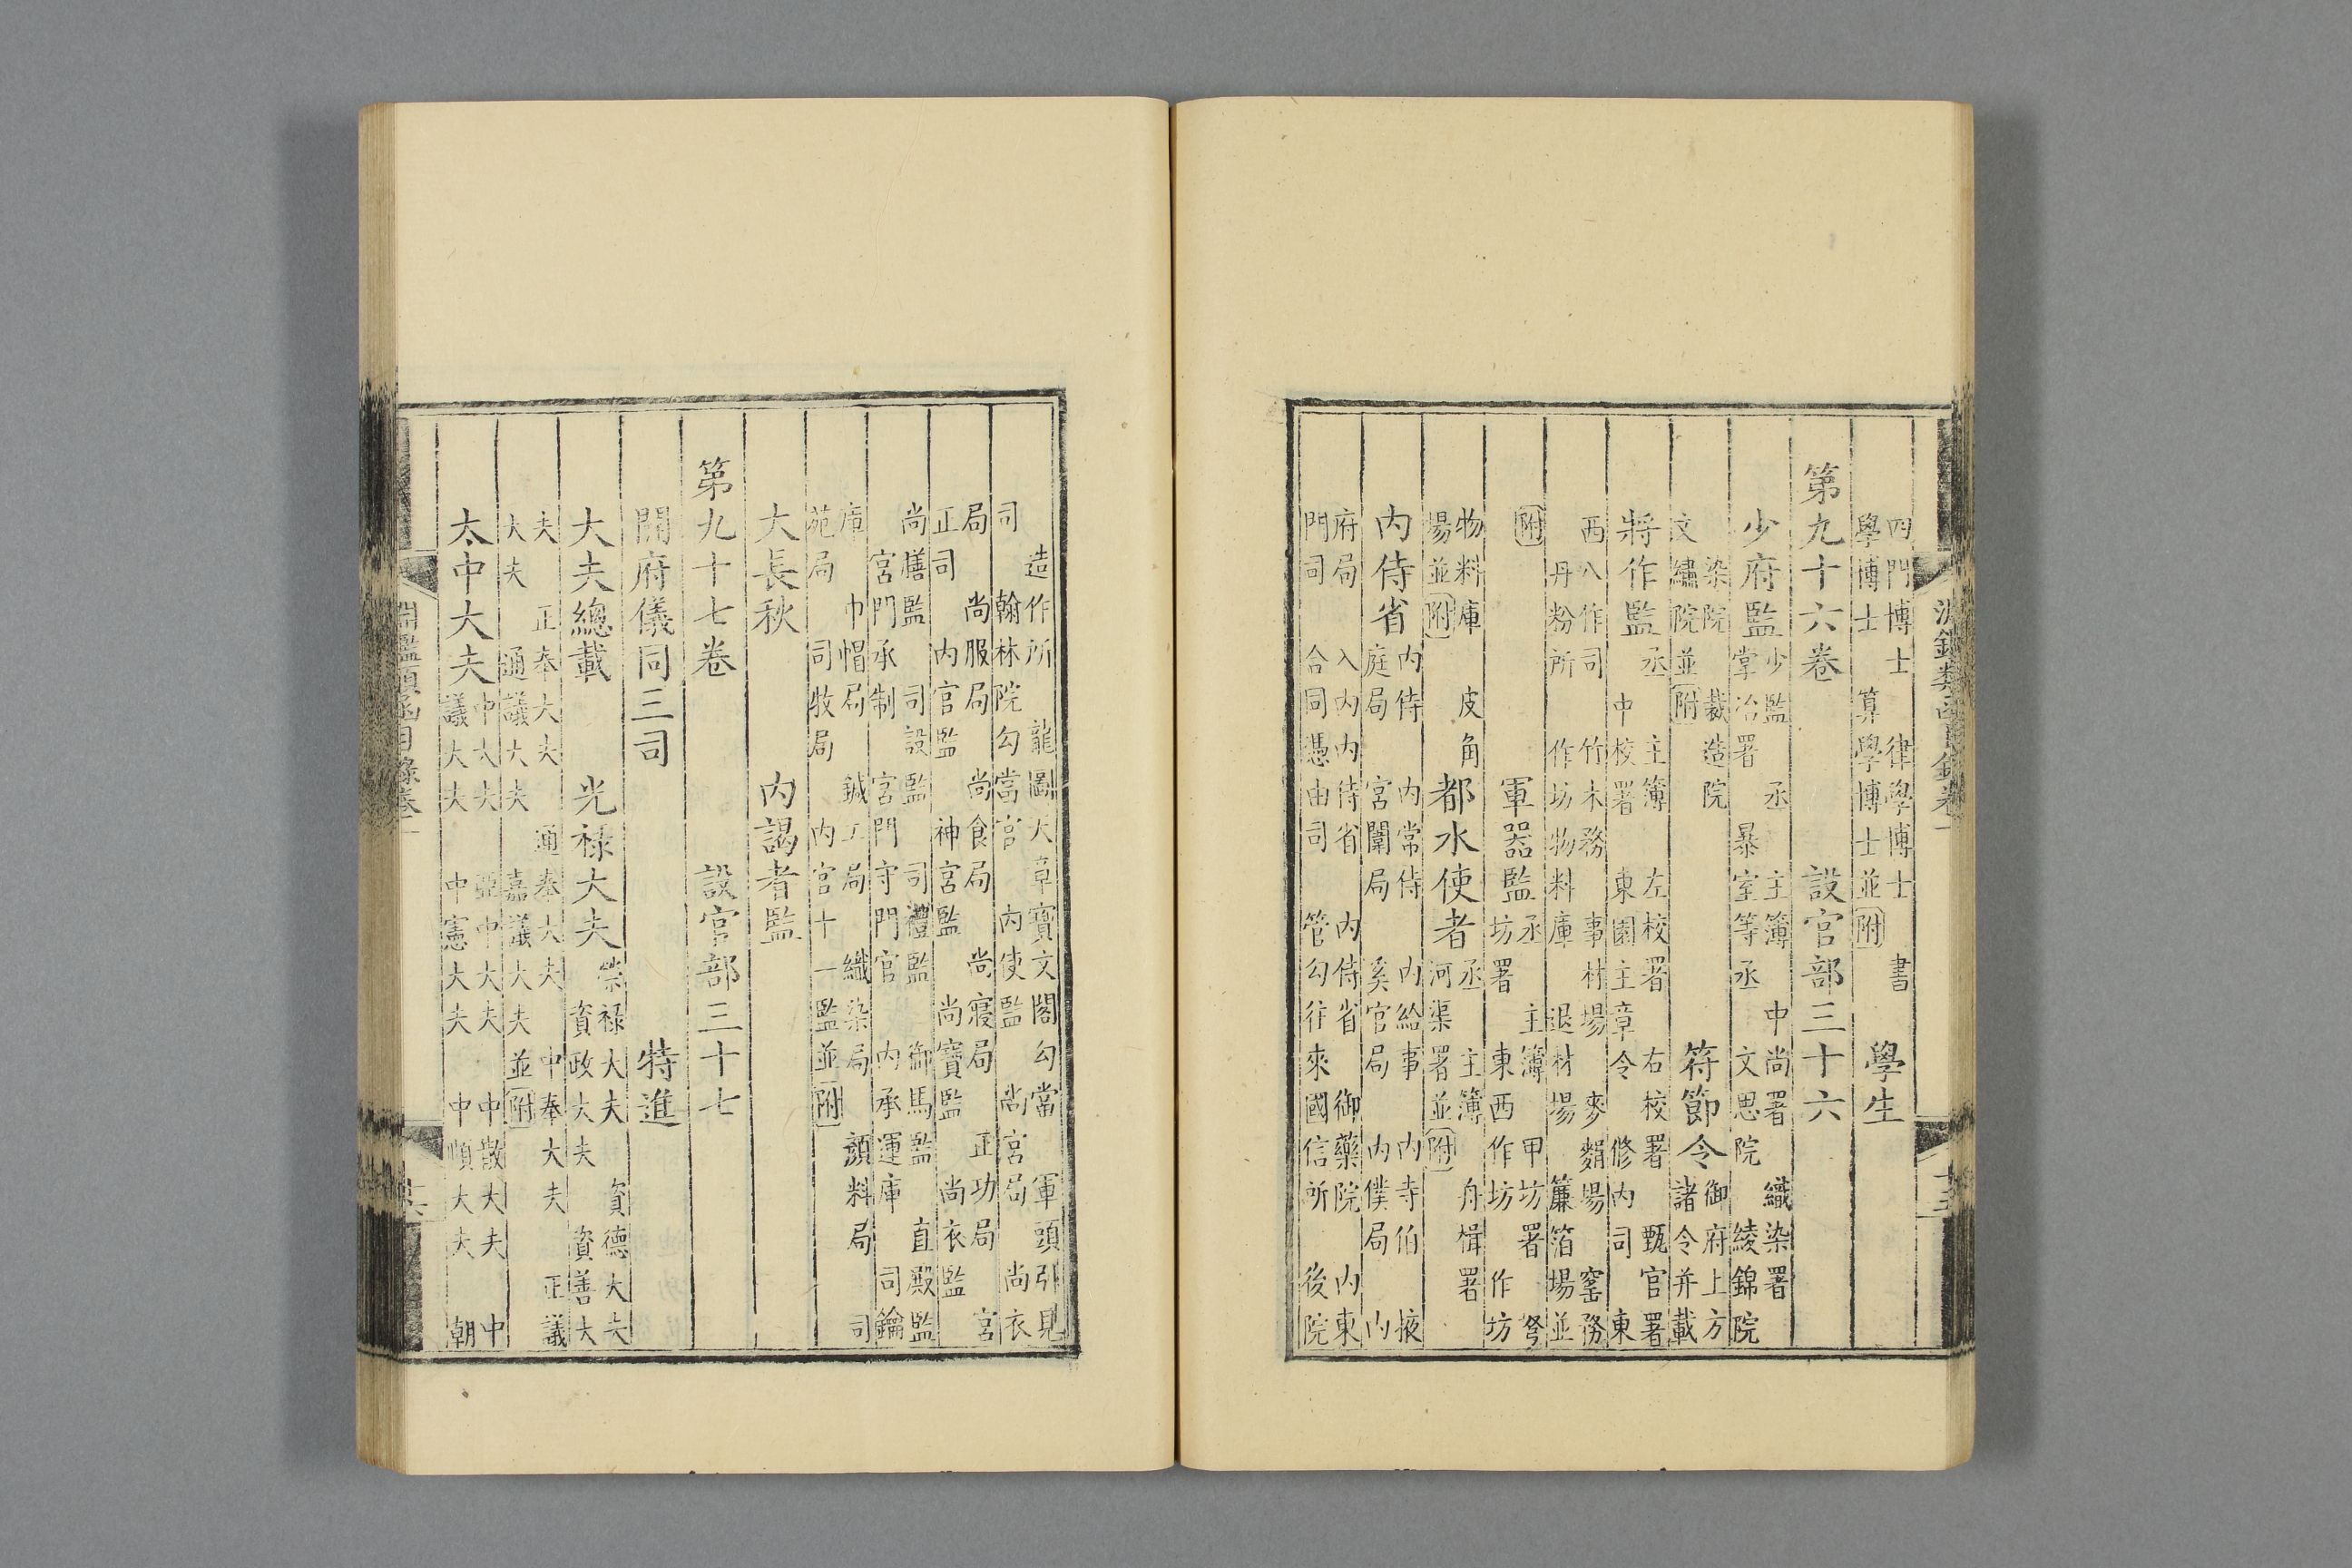 四門博士 律學博士 書
學博士 算學博士並附
學生
第九十六卷 設官部三十六
少府監
少監 丞 主簿 中尚署 織染署
掌冶署 暴室等丞 文思院 綾錦院
染院 裁造院
文繡院並附
符節令
御府上方
諸令并載
將作監
丞 主簿 左校署 右校署 甄官署
中校署 東園主章令 修內司 東
西八作司 竹木務 事材場 麥䴬場 窰務
丹粉所 作坊物料庫 退材場 簾箔場並
附
軍器監
丞 主簿 甲坊署 弩
坊署 東西作坊 作坊
物料庫 皮角
場並附
都水使者
丞 主簿 舟楫署
河渠署並附
內侍省
內侍 內常侍 內給事 內寺伯 掖
庭局 宮闈局 奚官局 內僕局 內
府局 入內內侍省 內侍省 御藥院 內東
門司 合同憑由司 管勾往來國信所 後院
造作所 龍圖天章寶文閣勾當 軍頭引見
司 翰林院勾當官 內使監 尚宮局 尚衣
局 尚服局 尚食局 尚寢局 正功局 宮
正司 內官監 神宮監 尚寶監 尚衣監
尚膳監 司設監 司禮監 御馬監 直殿監
宮門承制 宮門守門官 內承運庫 司鑰
庫 巾帽局 鍼工局 織染局 顏料局 司
苑局 司牧局 內官十一監並附
大長秋 內謁者監
第九十七卷 設官部三十七
開府儀同三司 特進
大夫總載 光祿大夫
崇祿大夫 資德大夫
資政大夫 資善大
夫 正奉大夫 通奉大夫 中奉大夫 正議
大夫 通議大夫 嘉議大夫並附
太中大夫
中大夫 亞中大夫 中散大夫 中
議大夫 中憲大夫 中順大夫 朝
淵鑑類函目錄卷一